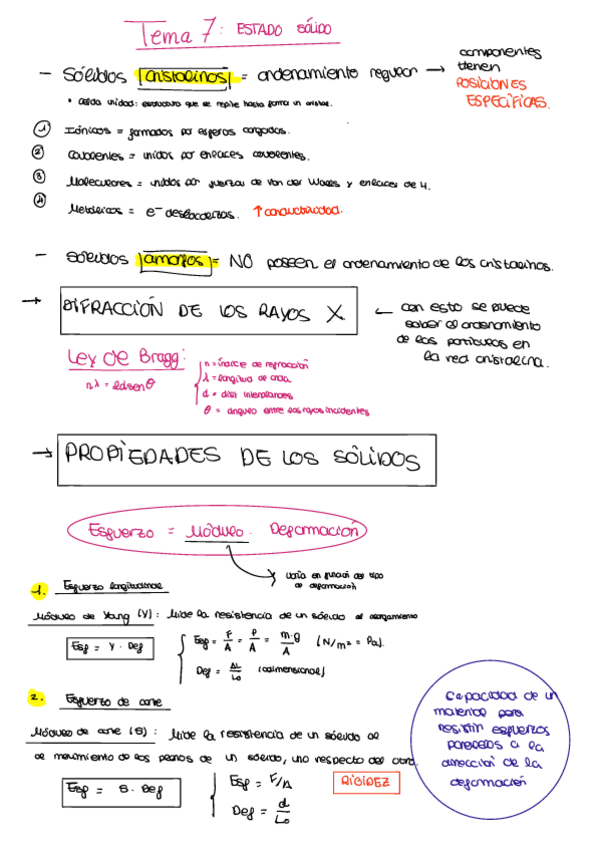 Tema 7: ESTADO SÓLIDO
- SÓLIDOS CRISTALINOS = ordenamiento regular → componentes tienen POSICIONES ESPECÍFICAS.
• celda unidad: estructura que se repite hasta formar un cristal.
1 Iónicos = formados por esferas cargadas.
2 Covalentes = unidos por enlaces covalentes.
3 Moleculares = unidos por fuerzas de Van der Waals y enlaces de H.
4 Metálicos = e⁻ deslocalizados. ↑conductividad.
- SÓLIDOS amorfos = NO poseen el ordenamiento de los cristalinos.
→ DIFRACCIÓN DE LOS RAYOS X
← con esto se puede
saber el ordenamiento
de las partículas en
la red cristalina.
Ley de Bragg:
nλ = 2dsenθ
n = índice de refracción
λ = longitud de onda
d = dist interplanares
θ = ángulo entre los rayos incidentes
→ PROPIEDADES DE LOS SÓLIDOS
Esfuerzo = Módulo · Deformación
varía en función del tipo
de deformación
1. Esfuerzo longitudinal
Módulo de Young (Y): Mide la resistencia de un sólido al alargamiento
Esf = Y · Def
Esf = F/A = P/A = m·g/A (N/m² = Pa).
Def = ΔL/Lo (adimensional)
2. Esfuerzo de corte
Módulo de corte (S): Mide la resistencia de un sólido al
de movimiento de los planos de un sólido, uno respecto del otro.
Esf = S · Def
Esf = F/A
Def = d/Lo
RIGIDEZ
Capacidad de un
material para
resistir esfuerzos
paralelos a la
dirección de la
deformación